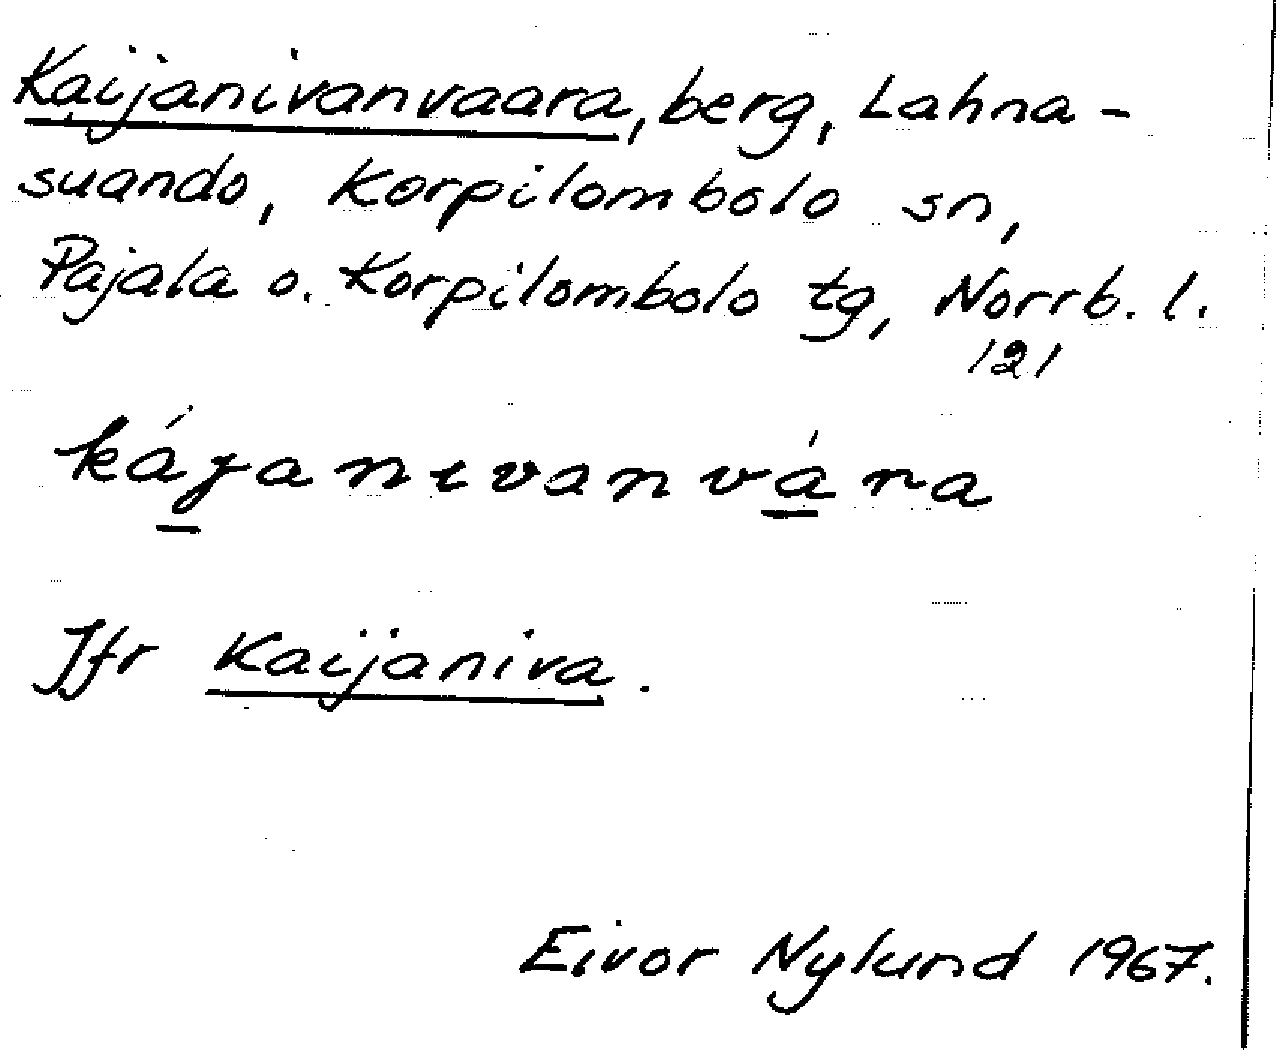 Kaijanivanvaara, berg, Lahna-
suando, Korpilombolo sn,
Pajala o. Korpilombolo tg, Norrb. l.
121
kájanɩvanvára
Jfr Kaijaniva.
Eivor Nylund 1967.